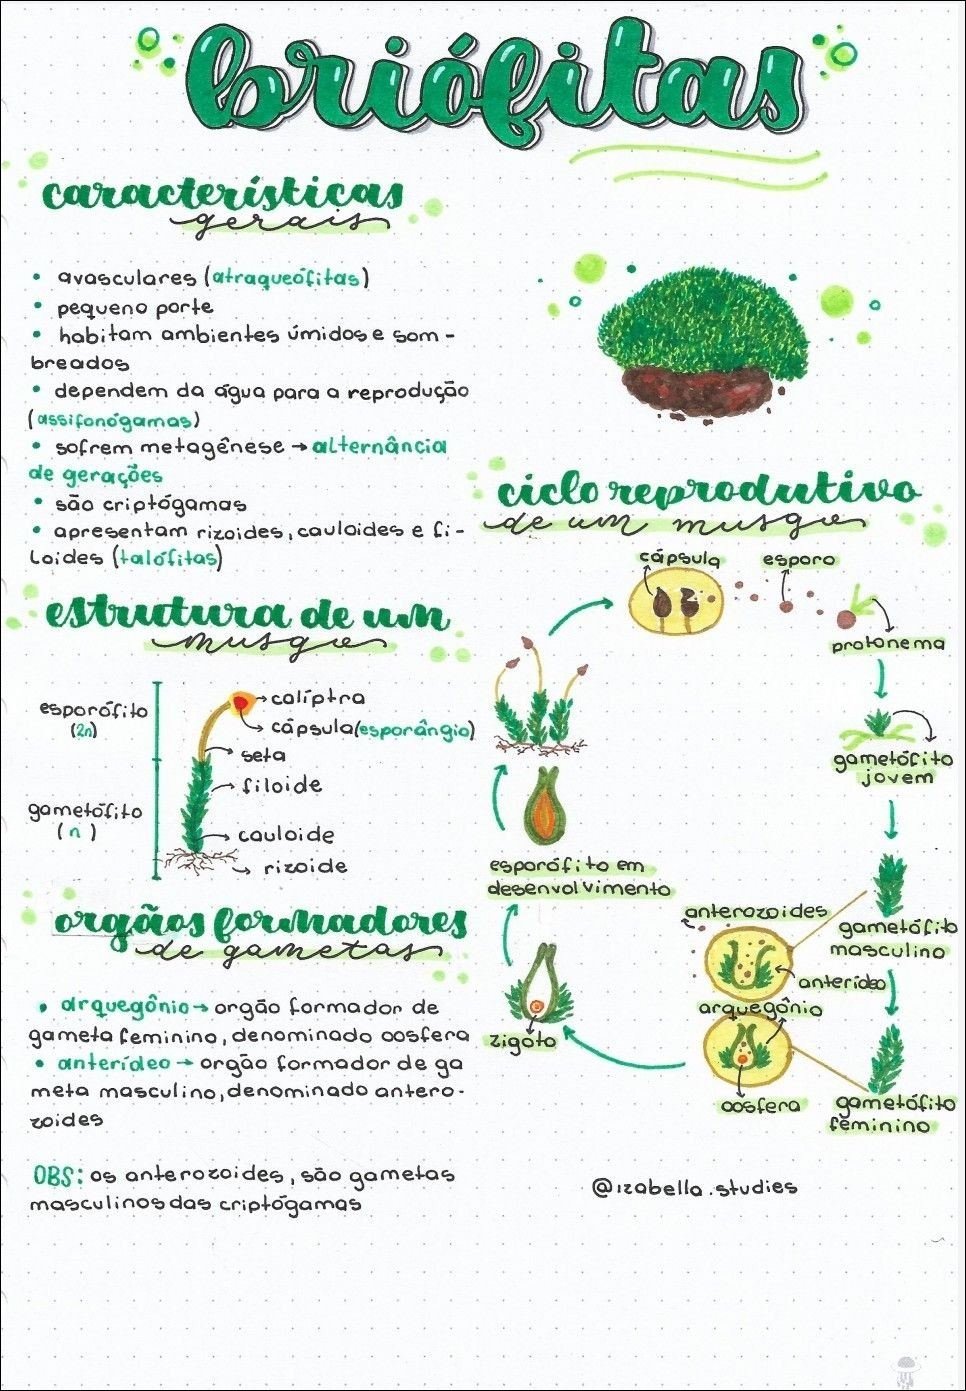 briófitas
características
gerais
• avasculares (atraqueófitas)
• pequeno porte
• habitam ambientes úmidos e som-
breados
• dependem da água para a reprodução
(assifonógamas)
• sofrem metagênese → alternância
de gerações
• são criptógamas
• apresentam rizoides, cauloides e fi-
loides (talófitas)
estrutura de um
musgo
esporófito
(2n)
gametófito
(n)
caliptra
cápsula (esporângio)
seta
filoide
cauloide
rizoide
orgãos formadores
de gametas
• arquegônio → orgão formador de
gameta feminino, denominado oosfera
• anterídeo → orgão formador de ga
meta masculino, denominado antero-
zoides
OBS: os anterozoides, são gametas
masculinos das criptógamas
ciclo reprodutivo
de um musgo
cápsula
esporo
protonema
gametófito
jovem
gametófito
masculino
anterozoides
anterídeo
arquegônio
oosfera
gametófito
feminino
zigoto
esporófito em
desenvolvimento
@izabella.studies